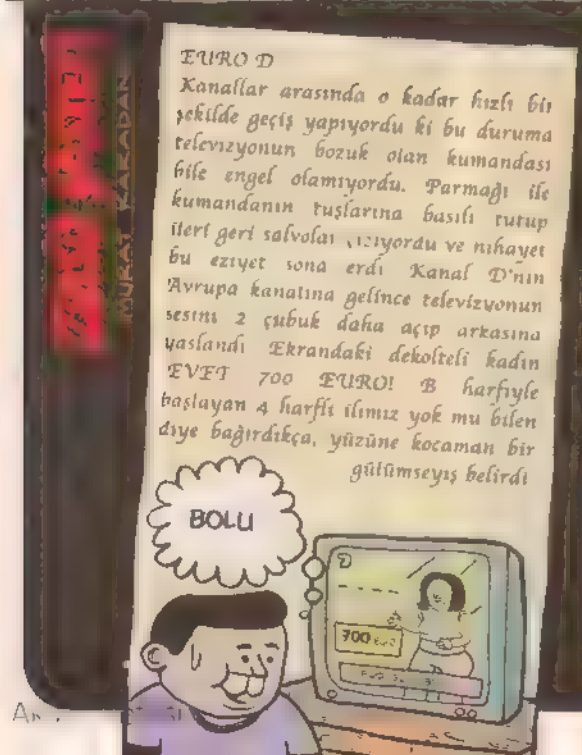 MURAT KARADAN
EURO D
Kanallar arasında o kadar hızlı bir
şekilde geçiş yapıyordu ki bu duruma
televizyonun bozuk olan kumandası
bile engel olamıyordu. Parmağı ile
kumandanın tuşlarına basılı tutup
ileri geri salvolar çiziyordu ve nihayet
bu eziyet sona erdi Kanal D'nin
Avrupa kanalına gelince televizyonun
sesini 2 çubuk daha açıp arkasına
yaslandı Ekrandaki dekolteli kadın
EVET 700 EURO! B harfiyle
başlayan 4 harfli ilimiz yok mu bilen
diye bağırdıkça, yüzüne kocaman bir
gülümseyiş belirdi
BOLU
D
700 euro